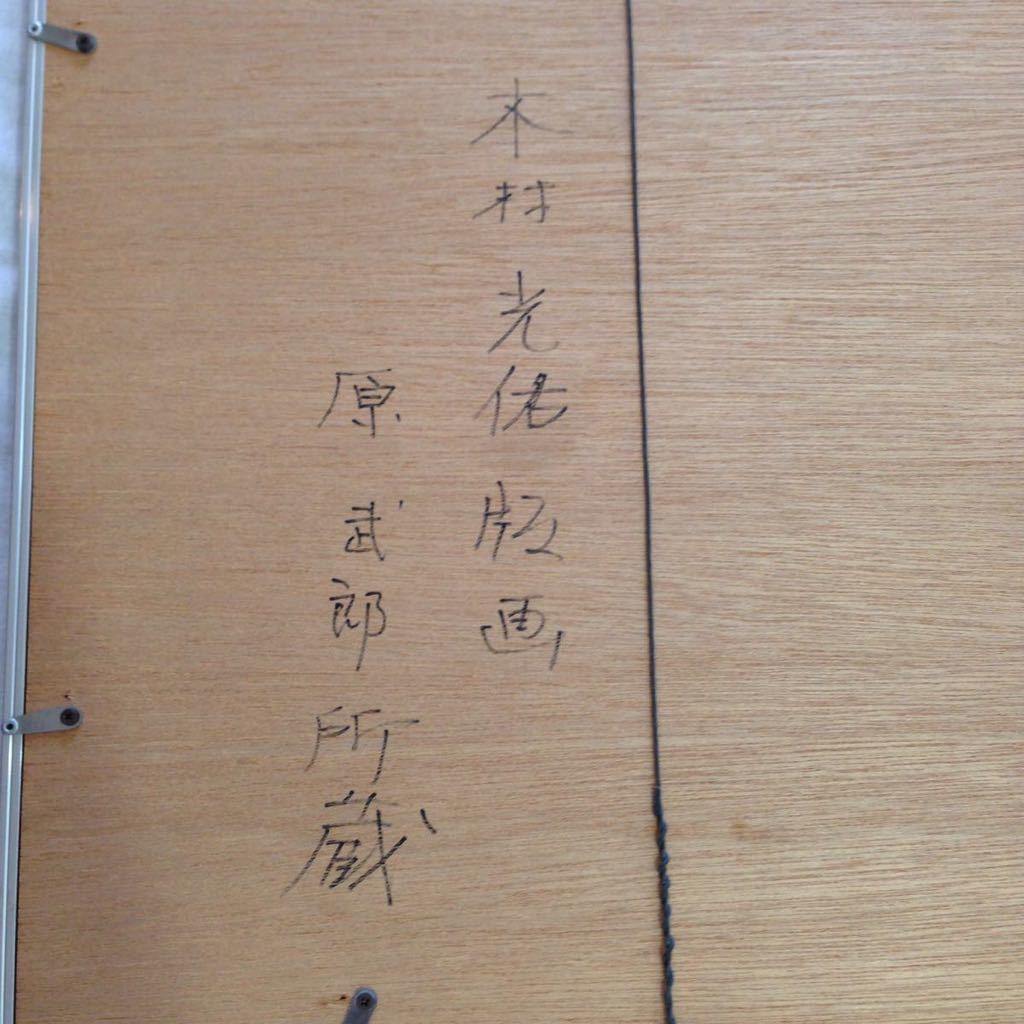 木村光佑版画
原武郎所蔵